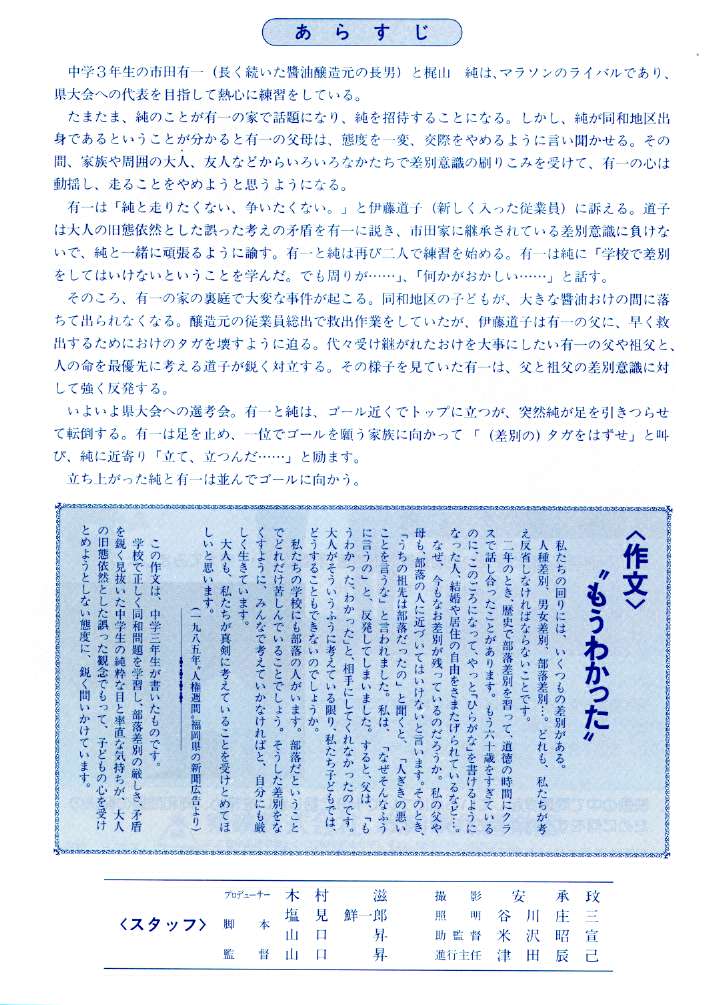 あらすじ
中学3年生の市田有一（長く続いた醬油醸造元の長男）と梶山　純は、マラソンのライバルであり、
県大会への代表を目指して熱心に練習をしている。
たまたま、純のことが有一の家で話題になり、純を招待することになる。しかし、純が同和地区出
身であるということが分かると有一の父母は、態度を一変、交際をやめるように言い聞かせる。その
間、家族や周囲の大人、友人などからいろいろなかたちで差別意識の刷りこみを受けて、有一の心は
動揺し、走ることをやめようと思うようになる。
有一は「純と走りたくない、争いたくない。」と伊藤道子（新しく入った従業員）に訴える。道子
は大人の旧態依然とした誤った考えの矛盾を有一に説き、市田家に継承されている差別意識に負けな
いで、純と一緒に頑張るように諭す。有一と純は再び二人で練習を始める。有一は純に「学校で差別
をしてはいけないということを学んだ。でも周りが……」、「何かがおかしい……」と話す。
そのころ、有一の家の裏庭で大変な事件が起こる。同和地区の子どもが、大きな醬油おけの間に落
ちて出られなくなる。醸造元の従業員総出で救出作業をしていたが、伊藤道子は有一の父に、早く救
出するためにおけのタガを壊すように迫る。代々受け継がれたおけを大事にしたい有一の父や祖父と、
人の命を最優先に考える道子が鋭く対立する。その様子を見ていた有一は、父と祖父の差別意識に対
して強く反発する。
いよいよ県大会への選考会。有一と純は、ゴール近くでトップに立つが、突然純が足を引きつらせ
て転倒する。有一は足を止め、一位でゴールを願う家族に向かって「（差別の）タガをはずせ」と叫
び、純に近寄り「立て、立つんだ……」と励ます。
立ち上がった純と有一は並んでゴールに向かう。
〈作文〉
〝もうわかった〟
私たちの回りには、いくつもの差別がある。
人種差別、男女差別、部落差別…。どれも、私たちが考
え反省しなければならないことです。
二年のとき、歴史で部落差別を習って、道徳の時間にクラ
スで話し合ったことがあります。もう六十歳をすぎている
のに、このごろになって、やっと、ひらがなを書けるように
なった人、結婚や居住の自由をさまたげられているなど…。
なぜ、今もなお差別が残っているのだろうか。私の父や
母も、部落の人に近づいてはいけないと言います。そのとき、
「うちの祖先は部落だったの」と聞くと、「人ぎきの悪い
ことを言うな」と言われました。私は、「なぜそんなふう
に言うの」と、反発してしまいました。すると、父は、「も
うわかった、わかった」と相手にしてくれなかったのです。
大人がそういうふうに考えている限り、私たち子どもでは、
どうすることもできないのでしょうか。
私たちの学校にも部落の人がいます。部落だということ
でどれだけ苦しんでいることでしょう。そうした差別をな
くすように、みんなで考えていかなければと、自分にも厳
しく生きています。
大人も、私たちが真剣に考えていることを受けとめてほ
しいと思います。
（一九八五年。人権週間。福岡県の新聞広告より）
この作文は、中学三年生が書いたものです。
学校で正しく同和問題を学習し、部落差別の厳しさ、矛盾
を鋭く見抜いた中学生の純粋な目と率直な気持ちが、大人
の旧態依然とした誤った観念でもって、子どもの心を受け
とめようとしない態度に、鋭く問いかけています。
〈スタッフ〉
プロデューサー　木村　滋
脚本　塩見鮮一郎
山口　昇
監督　山口　昇
撮影　安　承玟
照明　谷川庄三
助監督　米沢昭宣
進行主任　津田辰己